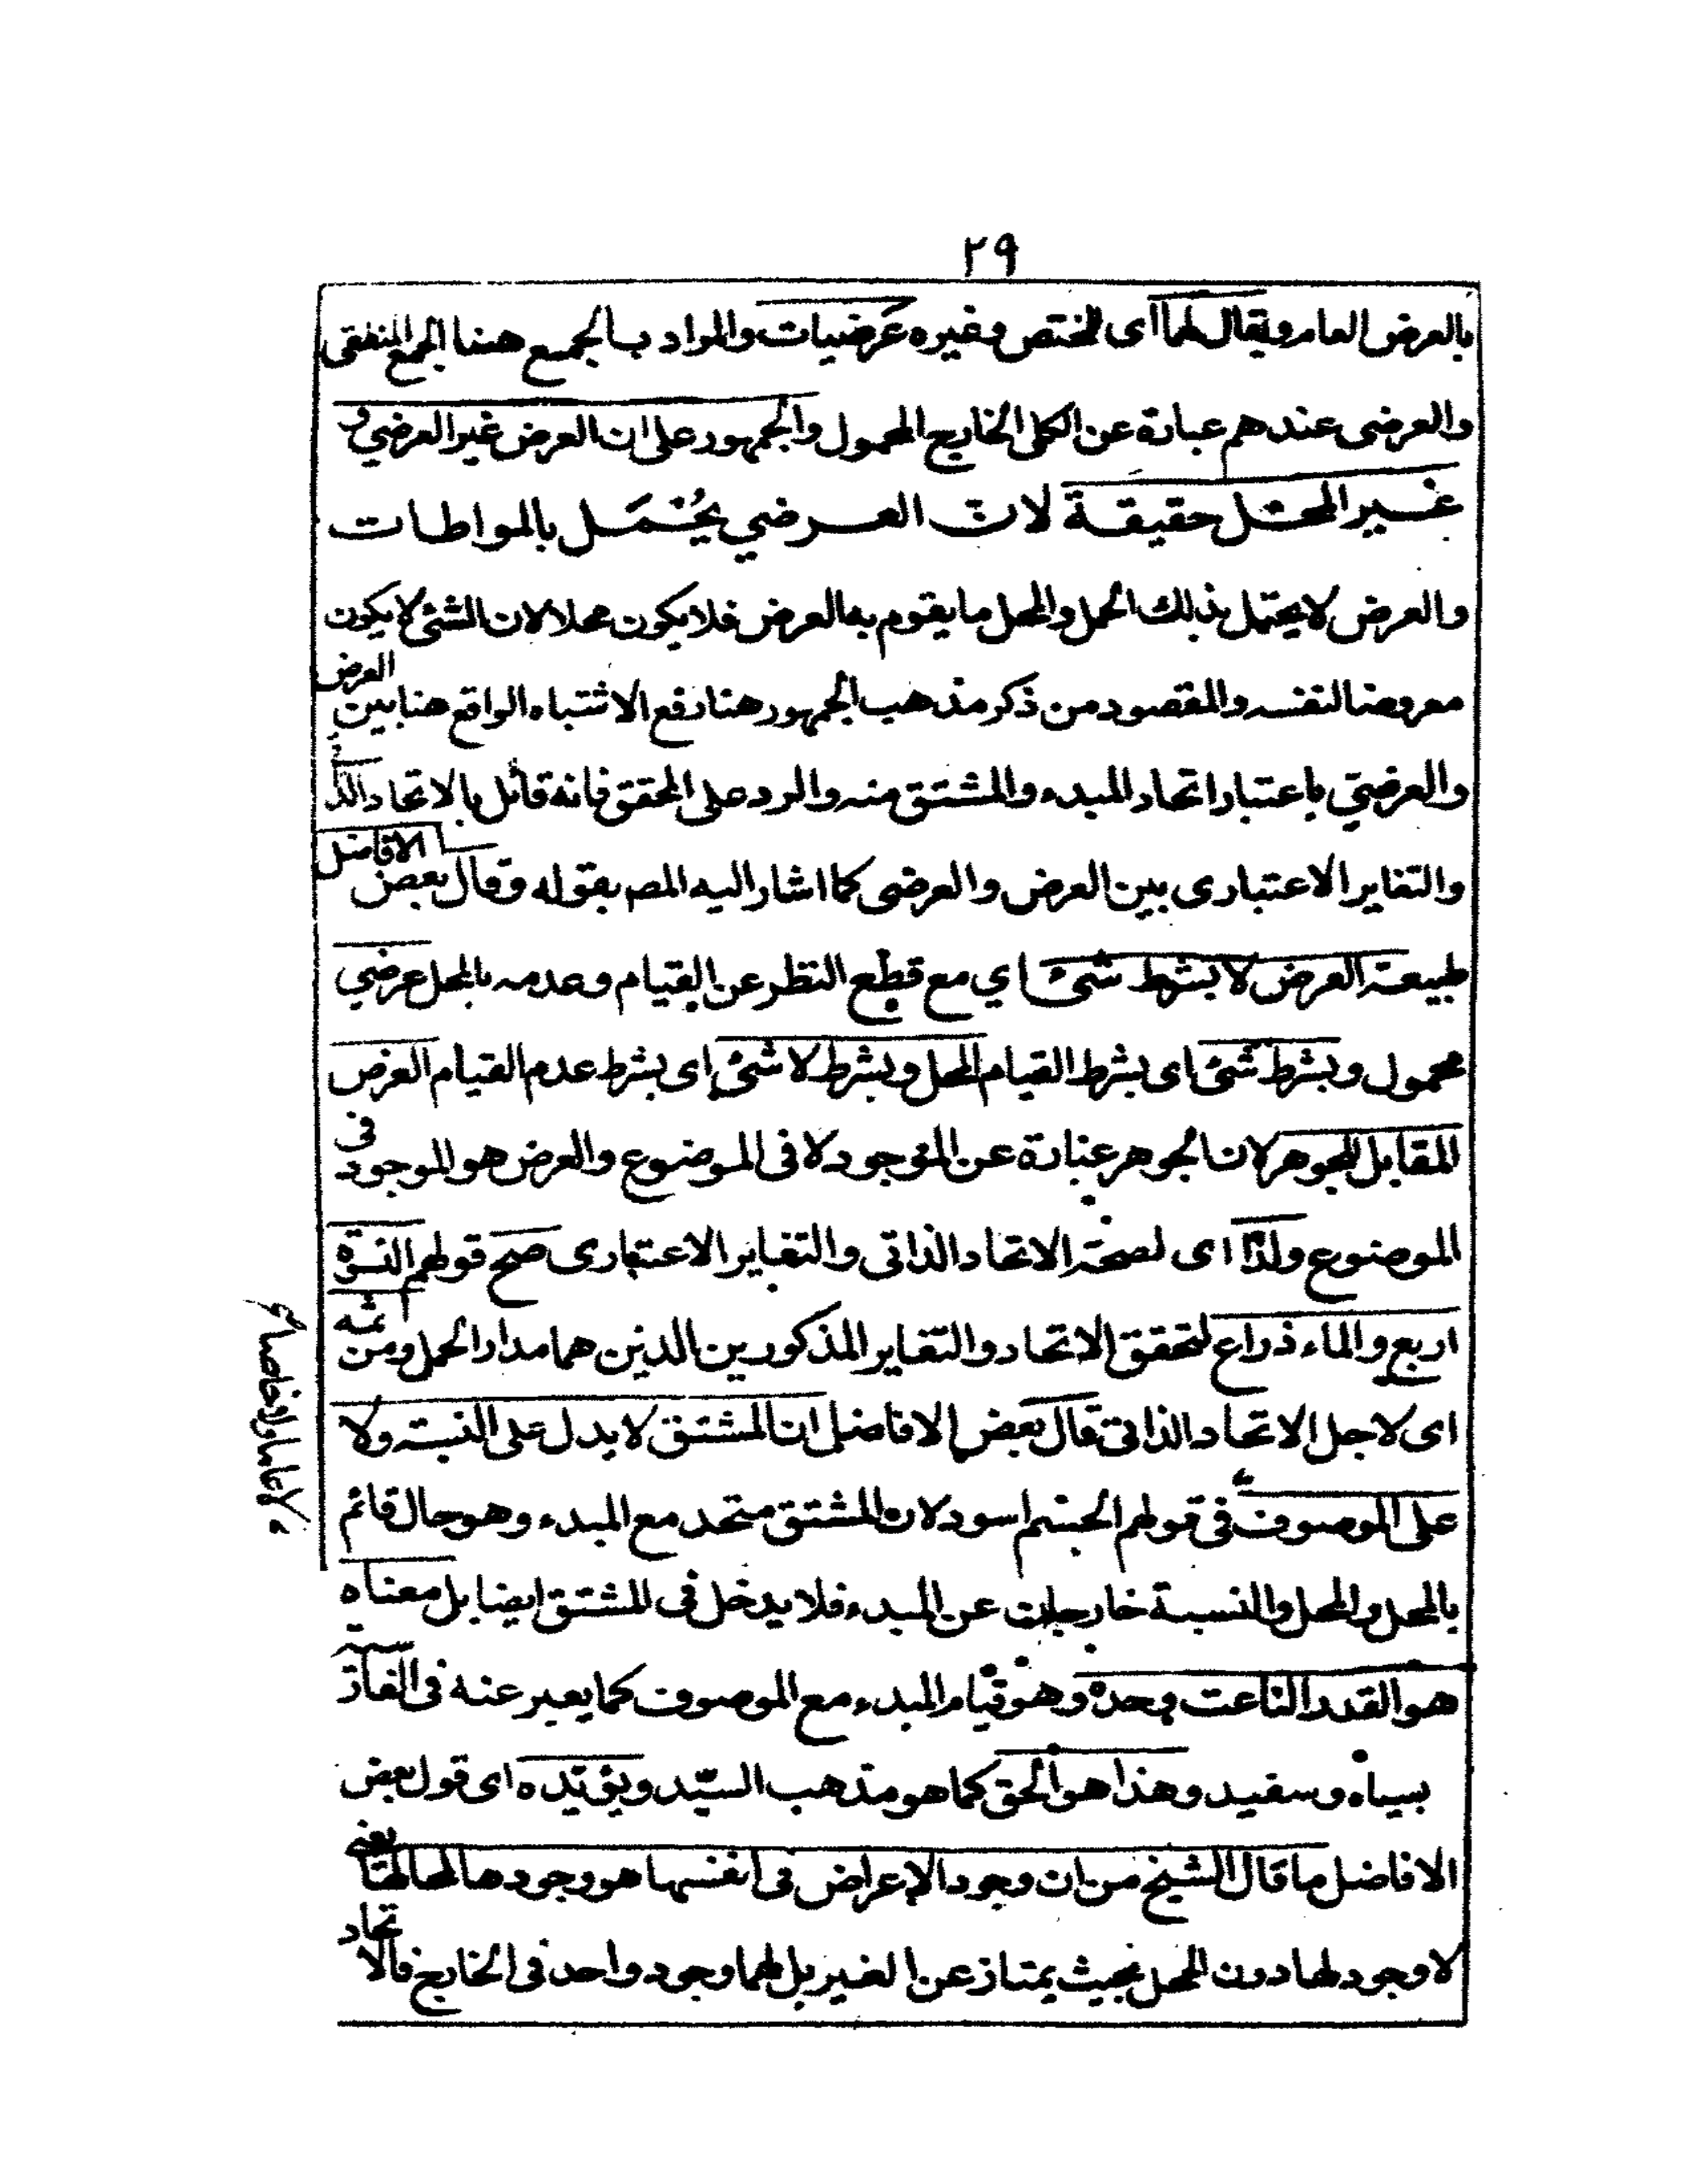 ٢٩
بالعرض العام ويقال لهما أى للمختص وغيره عَرضيات والمراد بالجميع ههنا الجمع المنطقى
والعرضى عندهم عبارة عن الكلى الخارج المحمول والجمهور على ان العرض غير العرضي و
غير المحل حقيقة لان العرضي يُحْمَل بالمواطات
والعرض لا يحتمل بذلك الحمل والمحل ما يقوم به العرض فلا يكون محلا لان الشئ لا يكون
معروضا لنفسه والمقصود من ذكر مذهب الجمهور هنا رفع الاشتباه الواقع هنا بين العرض
والعرضي باعتبار اتحاد المبدء والمشتق منه والرد على المحقق فانه قائل بالاتحاد الذا
والتغاير الاعتبارى بين العرض والعرضى كما اشار اليه المص بقوله وقال بعض الافاضل
طبيعة العرض لا بشرط شئ اي مع قطع النظر عن القيام وعدمه بالمحل عرضي
محمول وبشرط شئ اى بشرط القيام المحل وبشرط لا شئ اى بشرط عدم القيام العرض
المقابل للجوهر لان الجوهر عبارة عن الموجود لا فى الموضوع والعرض هو الموجود فى
الموضوع ولذا اى لصحة الاتحاد الذاتى والتغاير الاعتبارى صح قولهم النسوة
اربع والماء ذراع لتحقق الاتحاد والتغاير المذكورين الذين هما مدار الحمل ومن ثمه
اى لاجل الاتحاد الذاتى قال بعض الافاضل ان المشتق لا يدل على النسبة ولا
على الموصوف فى قولهم الجسم اسود لان المشتق متحد مع المبدء وهو حال قائم
بالمحل والمحل والنسبة خارجات عن المبدء فلا يدخل فى المشتق ايضا بل معناه
هو القدر الناعت وحده وهو قيام المبدء مع الموصوف كما يعبر عنه فى الفارسية
بسياه وسفيد وهذا هو الحق كما هو مذهب السيّد ويؤيده اى قول بعض
الافاضل ما قال الشيخ من ان وجود الاعراض فى انفسها هو وجودها لمحالها يعنى
لا وجود لها دون المحل بحيث يمتاز عن الغير بل لهما وجود واحد فى الخارج فالاتحاد